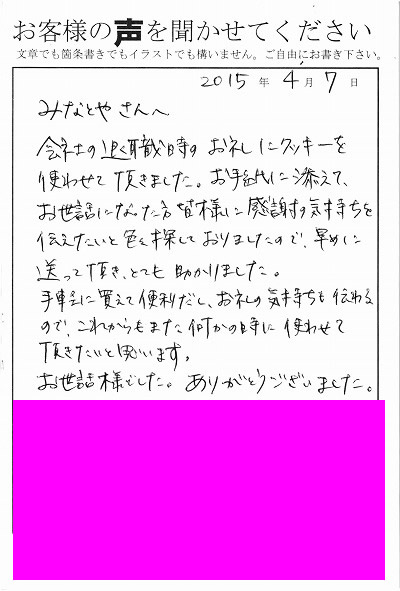 お客様の声を聞かせてください
文章でも箇条書きでもイラストでも構いません。ご自由にお書き下さい。
2015年 4月 7日
みなとやさんへ
会社の退職時のお礼にクッキーを
使わせて頂きました。お手紙に添えて、
お世話になった方皆様に感謝の気持ちを
伝えたいと色々探しておりましたので、早めに
送って頂き、とても助かりました。
手軽に買えて便利だし、お礼の気持ちも伝わる
ので、これからもまた何かの時に使わせて
頂きたいと思います。
お世話様でした。ありがとうございました。